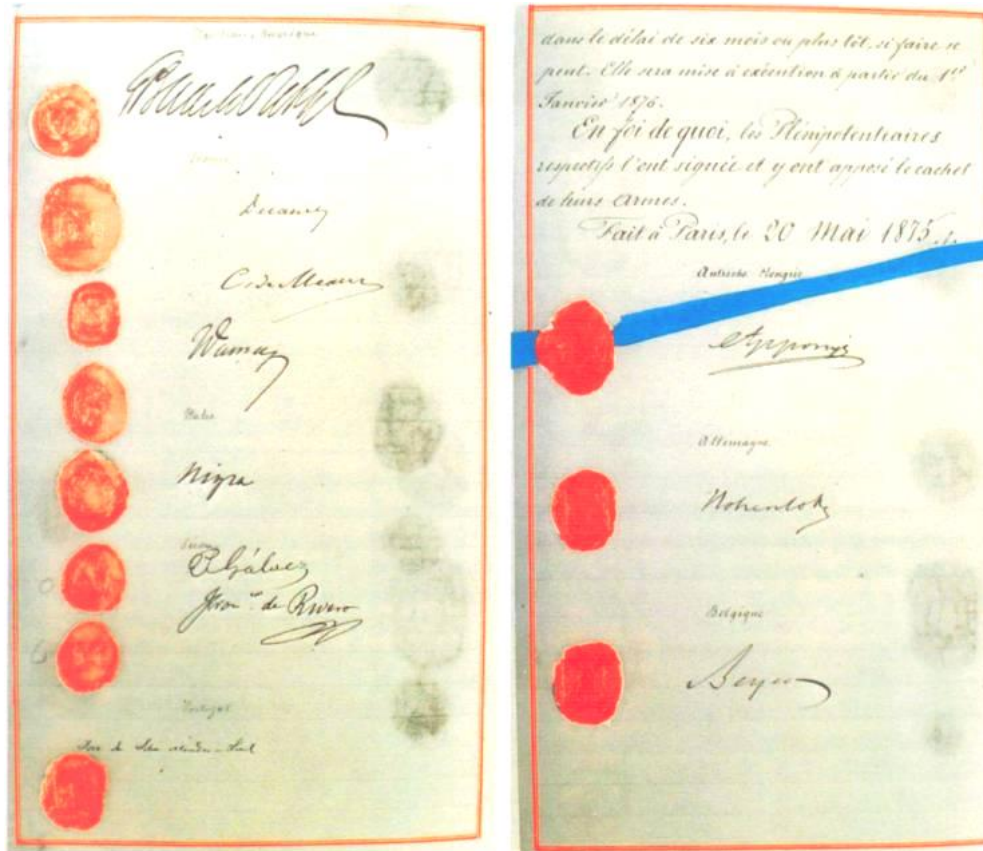 France
Decazes
C. de Meaux
Dumas
Italie
Nigra
Pérou
P. Gálvez
Franco. de Rivero
Portugal
José da Silva Mendes Leal
dans le délai de six mois ou plus tôt, si faire se
peut. Elle sera mise à exécution à partir du 1er
Janvier 1876.
En foi de quoi, les Plénipotentiaires
respectifs l'ont signée et y ont apposé le cachet
de leurs Armes.
Fait à Paris, le 20 Mai 1875.
Autriche-Hongrie
Apponyi
Allemagne
Hohenlohe
Belgique
Beyens